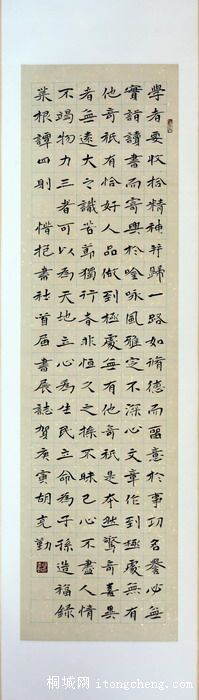 學者要收拾精神并歸一路如脩德而留意於事功名譽必無
實詣讀書而寄興於唫咏風雅定不深心文章作到極處無有
他奇祇有恰好人品做到極處無有他奇祇是本然驚奇喜異
者無遠大之識苦節獨行者非恒久之操不昧己心不盡人情
不竭物力三者可以為天地立心為生民立命為子孫造福錄
菜根譚四則 惜抱書社首屆書展誌賀庚寅胡克勤
桐城网 itongcheng.com